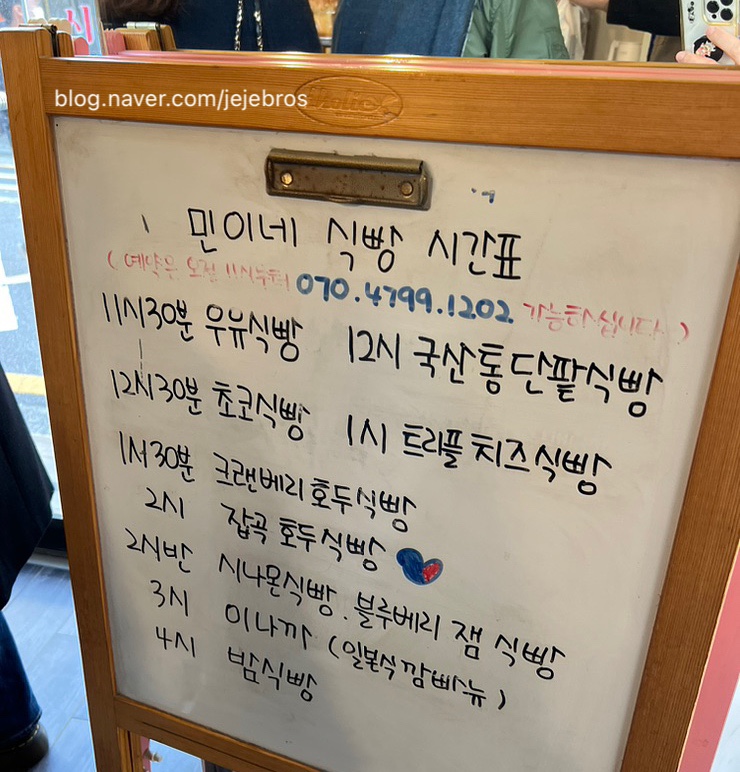 blog.naver.com/jejebros
민이네 식빵 시간표
( 예약은 오전 11시부터 070.4799.1202 가능하십니다. )
11시30분 우유식빵 12시 국산통단팥식빵
12시30분 초코식빵 1시 트리플치즈식빵
1시30분 크랜베리호두식빵
2시 잡곡 호두식빵
2시반 시나몬식빵. 블루베리 잼 식빵
3시 이나까 (일본식깜빠뉴)
4시 밤식빵